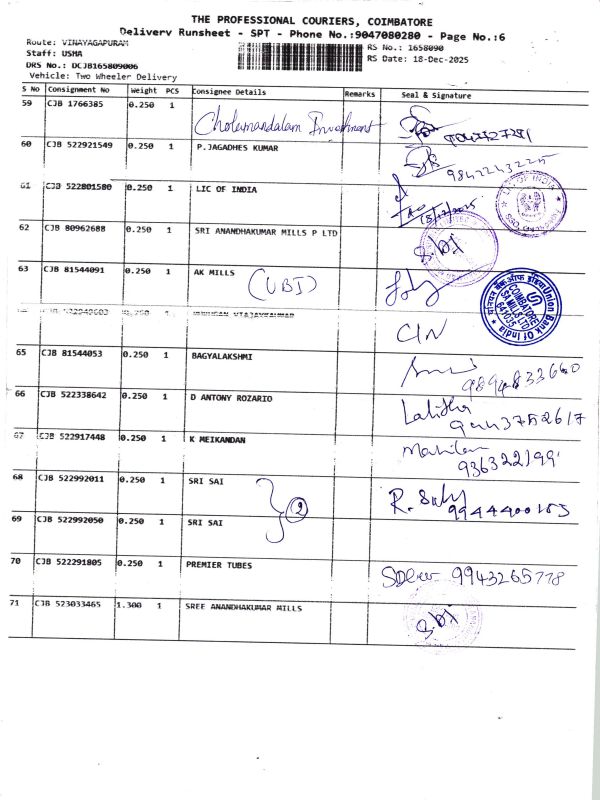 THE PROFESSIONAL COURIERS, COIMBATORE
Delivery Runsheet - SPT - Phone No.:9047080280 - Page No.:6
Route: VINAYAGAPURAM
RS No.: 1658090
Staff: USHA
RS Date: 18-Dec-2025
DRS No.: DCJB165809006
Vehicle: Two Wheeler Delivery
S No Consignment No Weight PCS Consignee Details Remarks Seal & Signature
59 CJB 1766385 0.250 1 Cholamandalam Investment
60 CJB 522921549 0.250 1 P.JAGADHES KUMAR 9842243225
61 CJB 522801580 0.250 1 LIC OF INDIA
62 CJB 80962688 0.250 1 SRI ANANDHAKUMAR MILLS P LTD
63 CJB 81544091 0.250 1 AK MILLS (UBI)
Union Bank Of India
COIMBATORE
641035
CIN
65 CJB 81544053 0.250 1 BAGYALAKSHMI 9894833660
66 CJB 522338642 0.250 1 D ANTONY ROZARIO Lalitha
67 CJB 522917448 0.250 1 K MEIKANDAN
68 CJB 522992011 0.250 1 SRI SAI 2
69 CJB 522992050 0.250 1 SRI SAI
70 CJB 522291805 0.250 1 PREMIER TUBES 9943265778
71 CJB 523033465 1.300 1 SREE ANANDHAKUMAR MILLS